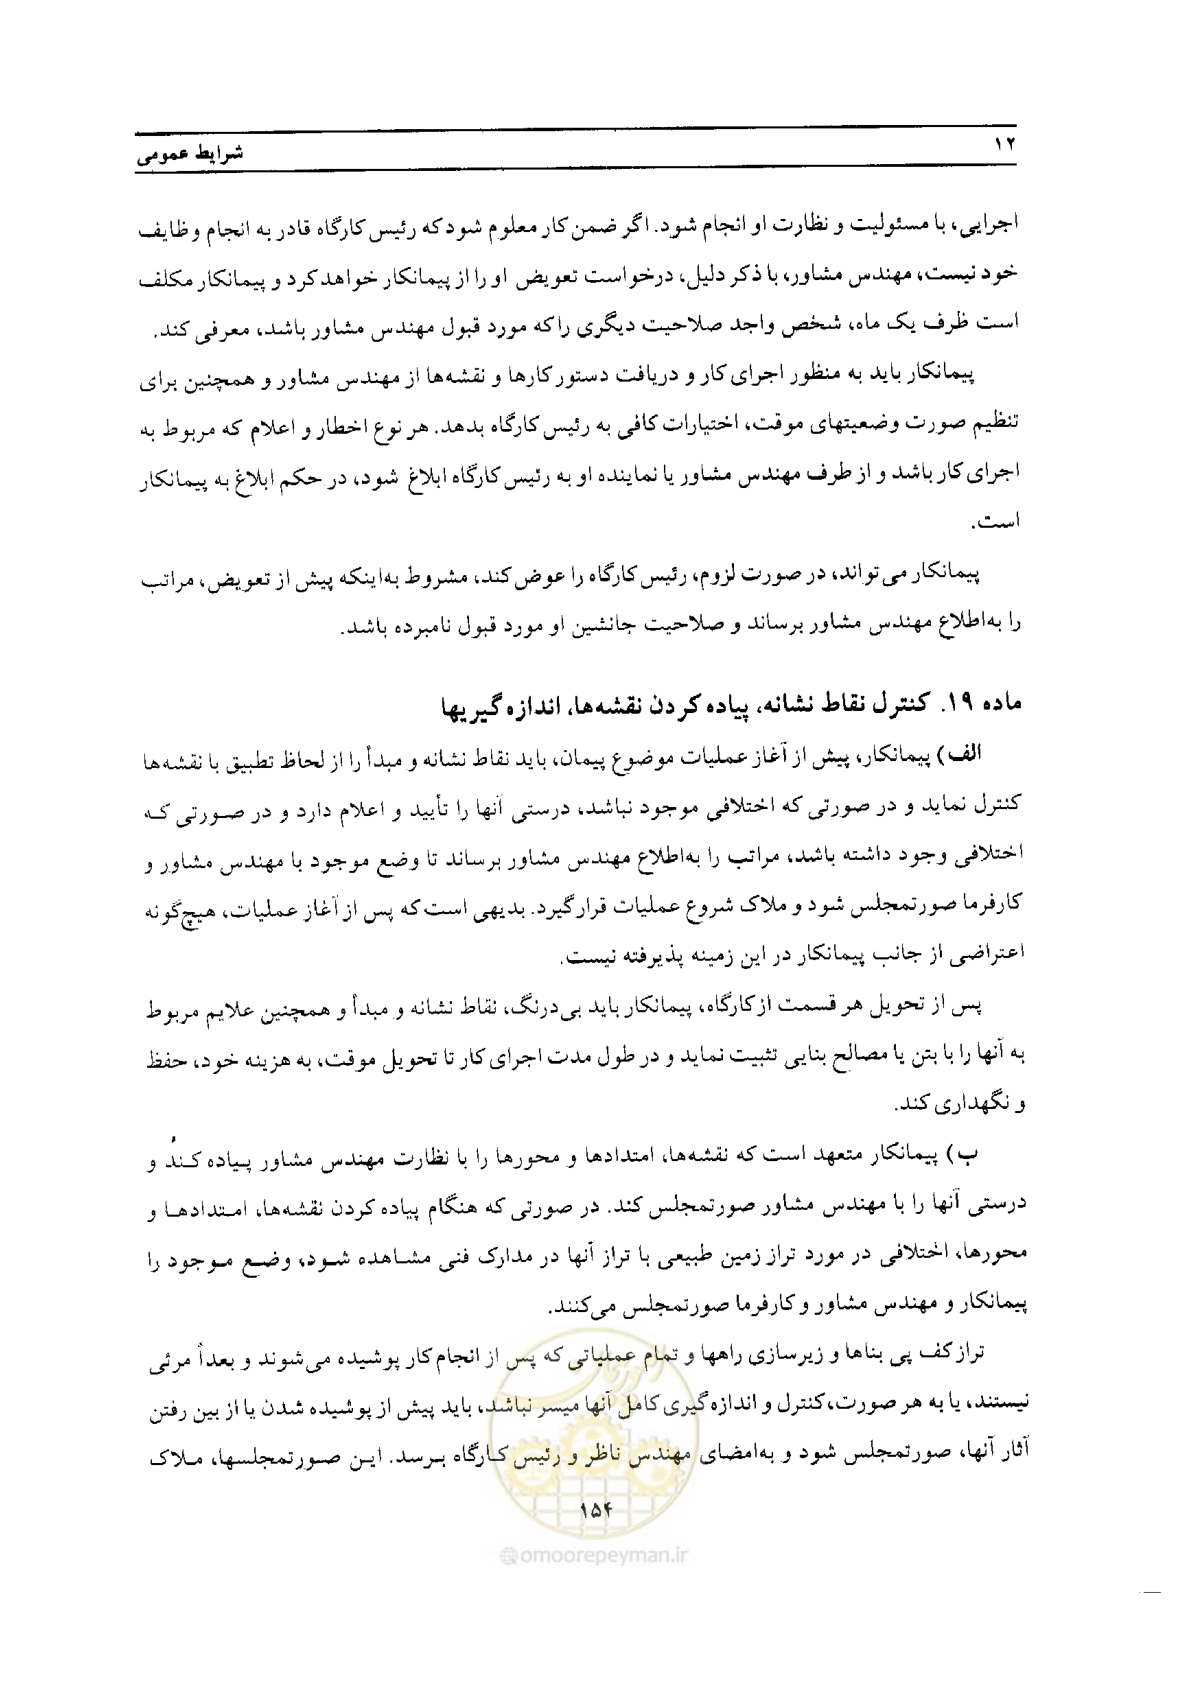 ۱۲
شرایط عمومی
اجرایی، با مسئولیت و نظارت او انجام شود. اگر ضمن کار معلوم شود که رئیس کارگاه قادر به انجام وظایف
خود نیست، مهندس مشاور، با ذکر دلیل، درخواست تعویض او را از پیمانکار خواهد کرد و پیمانکار مکلف
است ظرف یک ماه، شخص واجد صلاحیت دیگری را که مورد قبول مهندس مشاور باشد، معرفی کند.
پیمانکار باید به منظور اجرای کار و دریافت دستور کارها و نقشه‌ها از مهندس مشاور و همچنین برای
تنظیم صورت وضعیتهای موقت، اختیارات کافی به رئیس کارگاه بدهد. هر نوع اخطار و اعلام که مربوط به
اجرای کار باشد و از طرف مهندس مشاور یا نماینده او به رئیس کارگاه ابلاغ شود، در حکم ابلاغ به پیمانکار
است.
پیمانکار می‌تواند، در صورت لزوم، رئیس کارگاه را عوض کند، مشروط به‌اینکه پیش از تعویض، مراتب
را به‌اطلاع مهندس مشاور برساند و صلاحیت جانشین او مورد قبول نامبرده باشد.
ماده ۱۹. کنترل نقاط نشانه، پیاده کردن نقشه‌ها، اندازه گیریها
الف) پیمانکار، پیش از آغاز عملیات موضوع پیمان، باید نقاط نشانه و مبدأ را از لحاظ تطبیق با نقشه‌ها
کنترل نماید و در صورتی که اختلافی موجود نباشد، درستی آنها را تأیید و اعلام دارد و در صورتی که
اختلافی وجود داشته باشد، مراتب را به‌اطلاع مهندس مشاور برساند تا وضع موجود با مهندس مشاور و
کارفرما صورتمجلس شود و ملاک شروع عملیات قرار گیرد. بدیهی است که پس از آغاز عملیات، هیچ‌گونه
اعتراضی از جانب پیمانکار در این زمینه پذیرفته نیست.
پس از تحویل هر قسمت از کارگاه، پیمانکار باید بی‌درنگ، نقاط نشانه و مبدأ و همچنین علایم مربوط
به آنها را با بتن یا مصالح بنایی تثبیت نماید و در طول مدت اجرای کار تا تحویل موقت، به هزینه خود، حفظ
و نگهداری کند.
ب) پیمانکار متعهد است که نقشه‌ها، امتدادها و محورها را با نظارت مهندس مشاور پیاده کند و
درستی آنها را با مهندس مشاور صورتمجلس کند. در صورتی که هنگام پیاده کردن نقشه‌ها، امتدادها و
محورها، اختلافی در مورد تراز زمین طبیعی با تراز آنها در مدارک فنی مشاهده شود، وضع موجود را
پیمانکار و مهندس مشاور و کارفرما صورتمجلس می‌کنند.
تراز کف پی بناها و زیرسازی راهها و تمام عملیاتی که پس از انجام کار پوشیده می‌شوند و بعداً مرئی
نیستند، یا به هر صورت، کنترل و اندازه‌گیری کامل آنها میسر نباشد، باید پیش از پوشیده شدن یا از بین رفتن
آثار آنها، صورتمجلس شود و به‌امضای مهندس ناظر و رئیس کارگاه برسد. این صورتمجلسها، ملاک
۱۵۴
امور پیمان
@omoorepeyman.ir